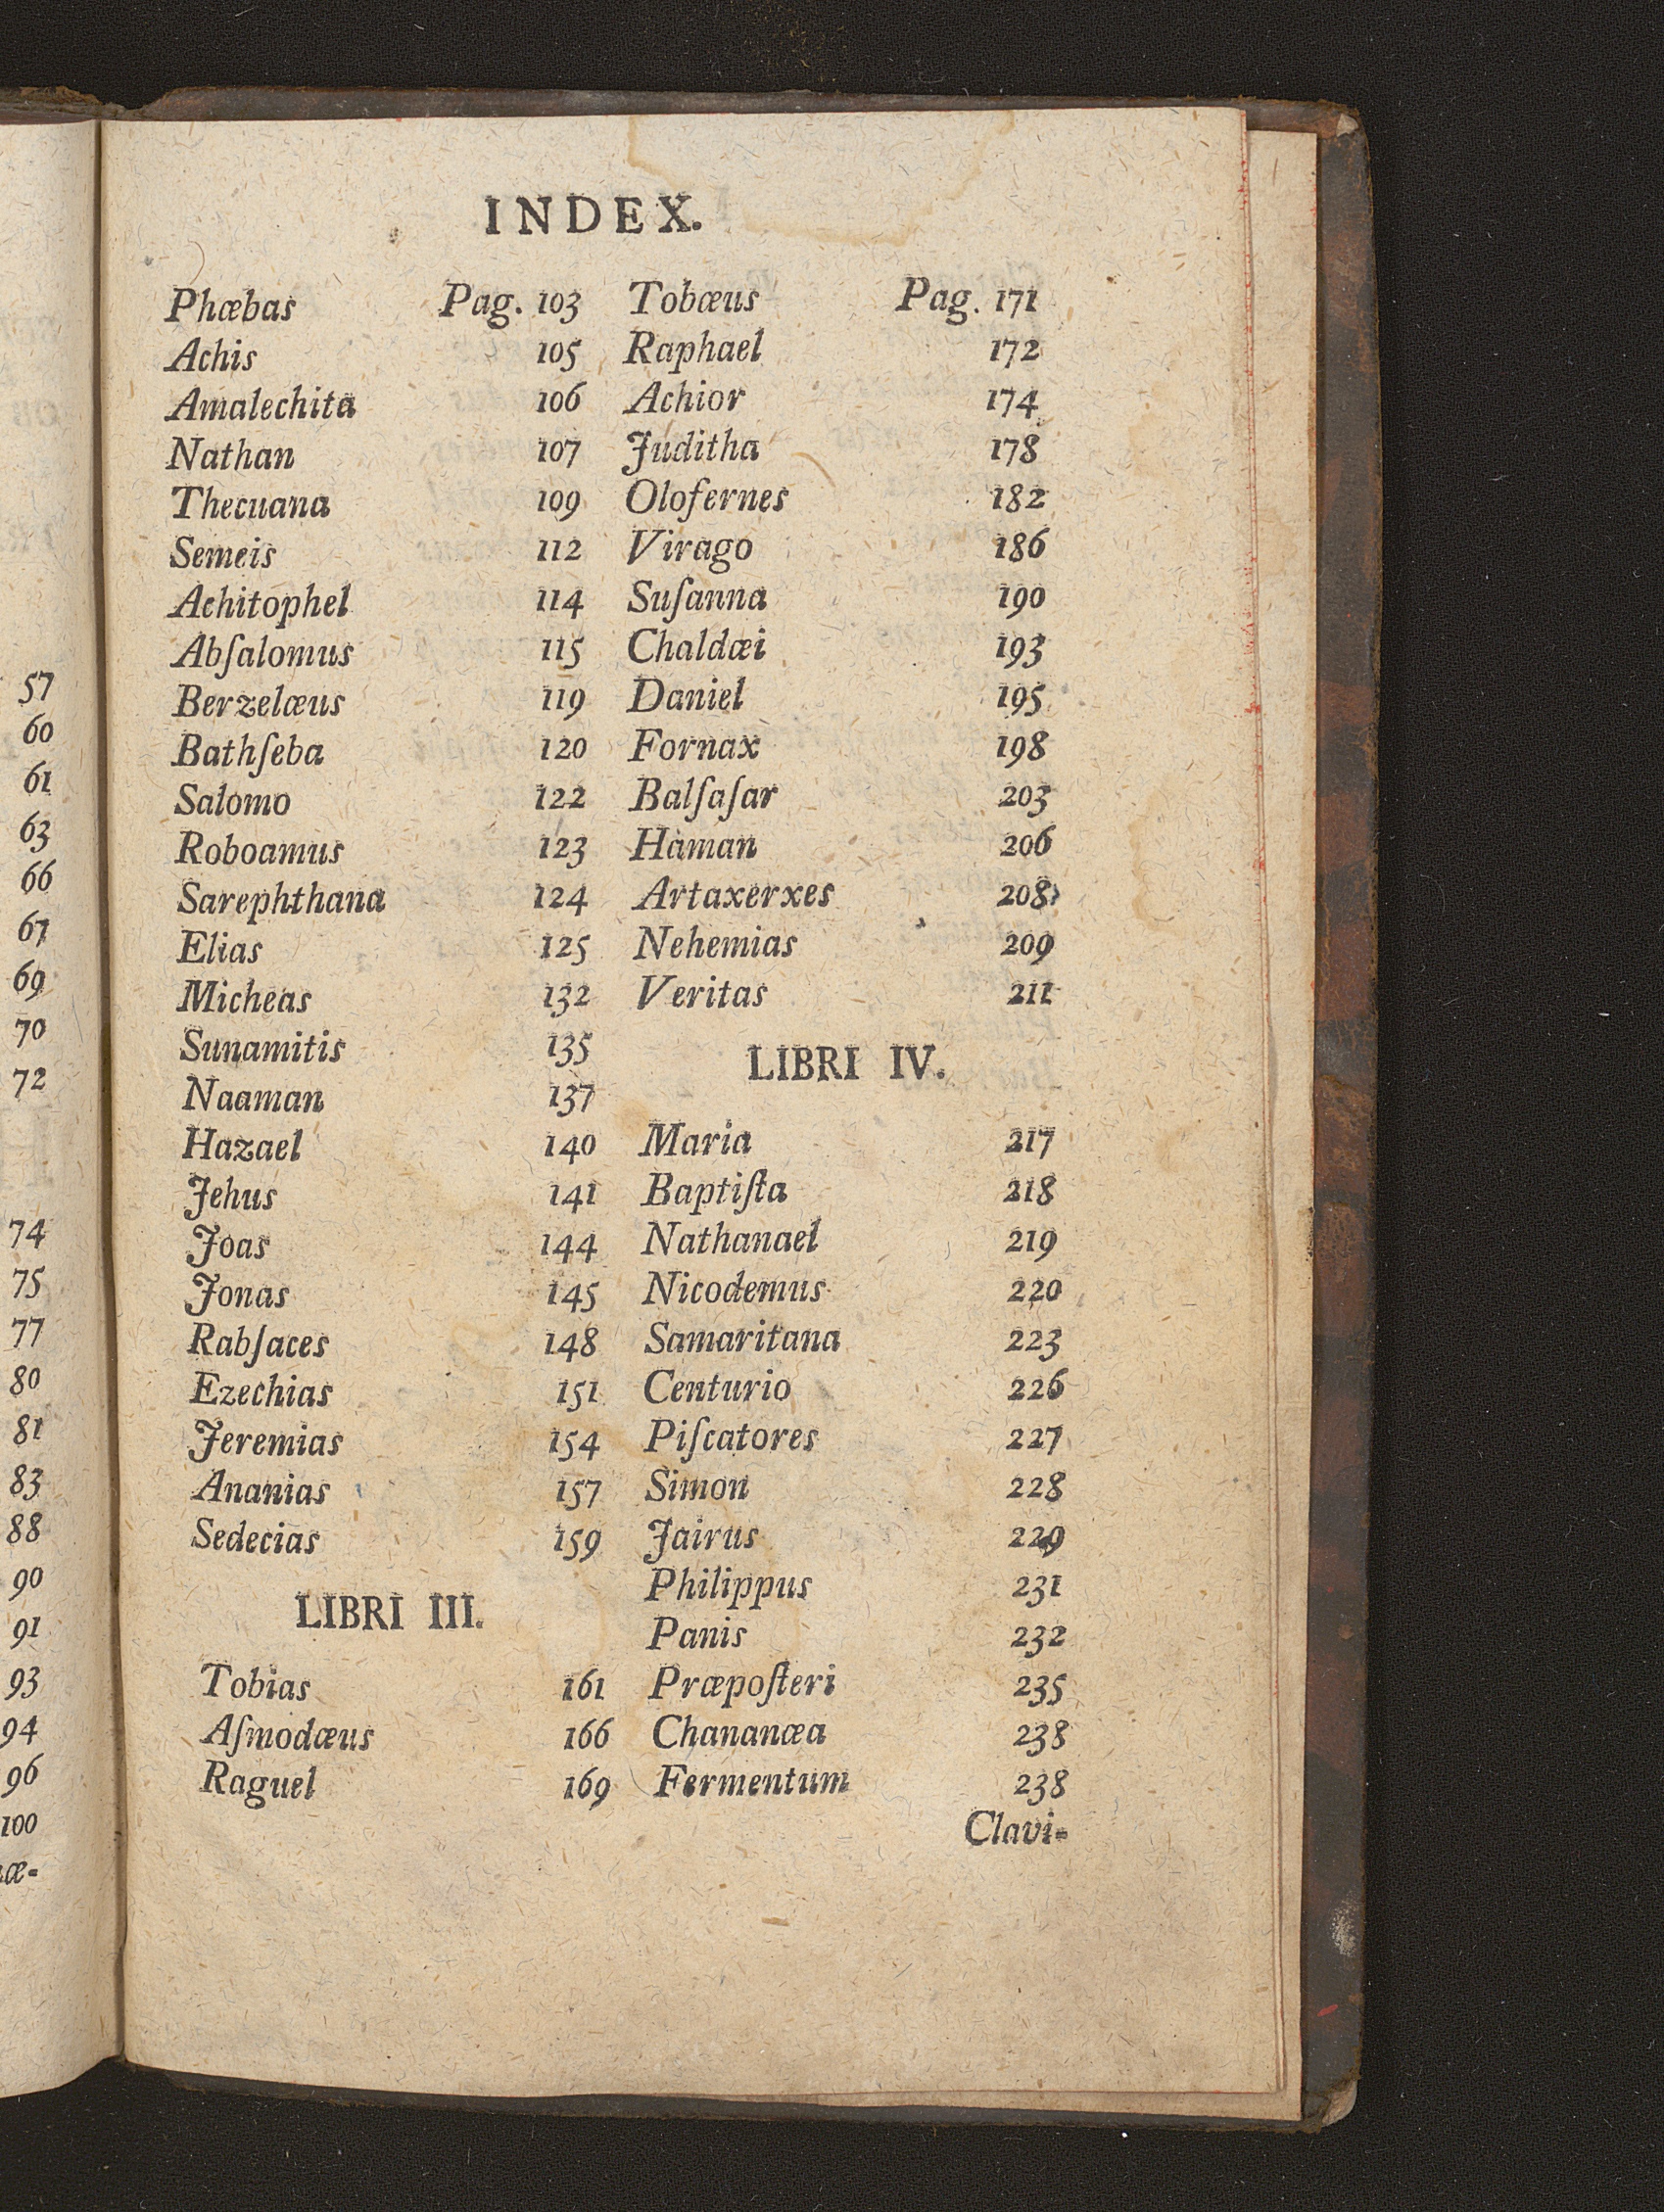 INDEX.
Phæbas Pag. 103
Achis 105
Amalechita 106
Nathan 107
Thecuana 109
Semeis 112
Achitophel 114
Abſalomus 115
Berzelæus 119
Bathſeba 120
Salomo 122
Roboamus 123
Sarephthana 124
Elias 125
Micheas 132
Sunamitis 135
Naaman 137
Hazael 140
Jehus 141
Joas 144
Jonas 145
Rabſaces 148
Ezechias 151
Jeremias 154
Ananias 157
Sedecias 159
LIBRI III.
Tobias 161
Aſmodæus 166
Raguel 169
Tobæus Pag. 171
Raphael 172
Achior 174
Juditha 178
Olofernes 182
Virago 186
Suſanna 190
Chaldæi 193
Daniel 195
Fornax 198
Balſaſar 203
Haman 206
Artaxerxes 208
Nehemias 209
Veritas 211
LIBRI IV.
Maria 217
Baptiſta 218
Nathanael 219
Nicodemus 220
Samaritana 223
Centurio 226
Piſcatores 227
Simon 228
Jairus 229
Philippus 231
Panis 232
Præpoſteri 235
Chananæa 238
Fermentum 238
Clavi-
57
60
61
63
66
67
69
70
72
74
75
77
80
81
83
88
90
91
93
94
96
100